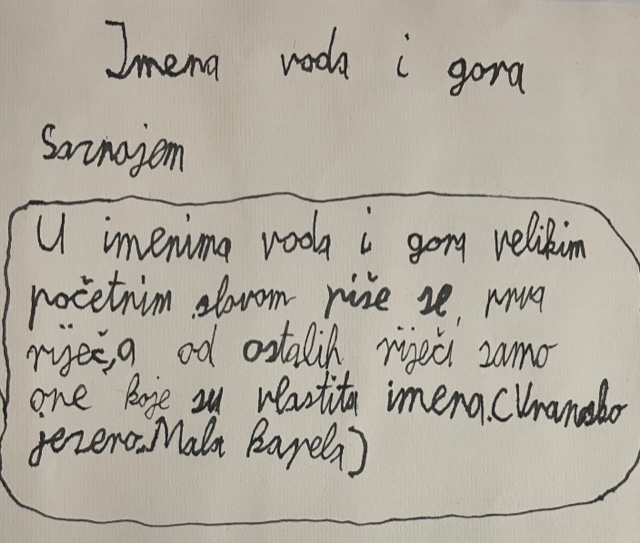 Imena voda i gora
Saznajem
U imenima voda i gora velikim
početnim slovom piše se prva
riječ, a od ostalih riječi samo
one koje su vlastita imena. (Vransko
jezero. Mala kapela)